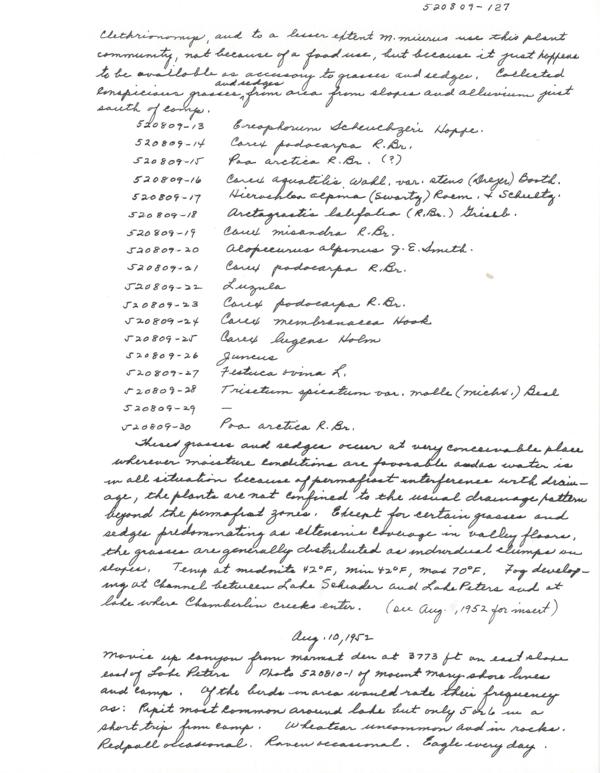 520809-127
Clethrionomys, and to a lesser extent M. miurus use this plant
community, not because of a food use, but because it just happens
to be available as accessory to grasses and sedges. Collected
conspicious grasses and sedges from area from slopes and alluvium just
south of camp.
520809-13 Ereophorum Scheuchzeri Hoppe.
520809-14 Carex podocarpa R.Br.
520809-15 Poa arctica R.Br. (?)
520809-16 Carex aquatilis Wahl. var. stans (Drejer) Booth.
520809-17 Hierochloa alpina (Swartz) Roem. & Schultz.
520809-18 Arctagrostis latifolia (R.Br.) Griseb.
520809-19 Carex misandra R.Br.
520809-20 Alopecurus alpinus J.E. Smith.
520809-21 Carex podocarpa R.Br.
520809-22 Luzula
520809-23 Carex podocarpa R.Br.
520809-24 Carex membranacea Hook
520809-25 Carex lugens Holm
520809-26 Juncus
520809-27 Festuca ovina L.
520809-28 Trisetum spicatum var. molle (Michx.) Beal
520809-29 —
520809-30 Poa arctica R.Br.
These grasses and sedges occur at very conceivable place
wherever moisture conditions are favorable and as water is
in all situation because of permafrost interference with drain-
age, the plants are not confined to the usual drainage pattern
beyond the permafrost zones. Except for certain grasses and
sedges predominating as extensive coverage in valley floors,
the grasses are generally distributed as individual clumps on
slopes. Temp at midnite 42°F, min 42°F, max 70°F. Fog develop-
ing at Channel between Lake Schrader and Lake Peters and at
lake where Chamberlin creeks enter. (see Aug. , 1952 for insert)
Aug. 10, 1952
Movie up canyon from marmot den at 3773 ft on east slope
east of Lake Peters Photo 520810-1 of Mount Mary shore lines
and camp. Of the birds in area would rate their frequency
as: Pipit most common around lake but only 5 or 6 in a
short trip from camp. Wheatear uncommon and in rocks.
Redpoll occasional. Raven occasional. Eagle every day.